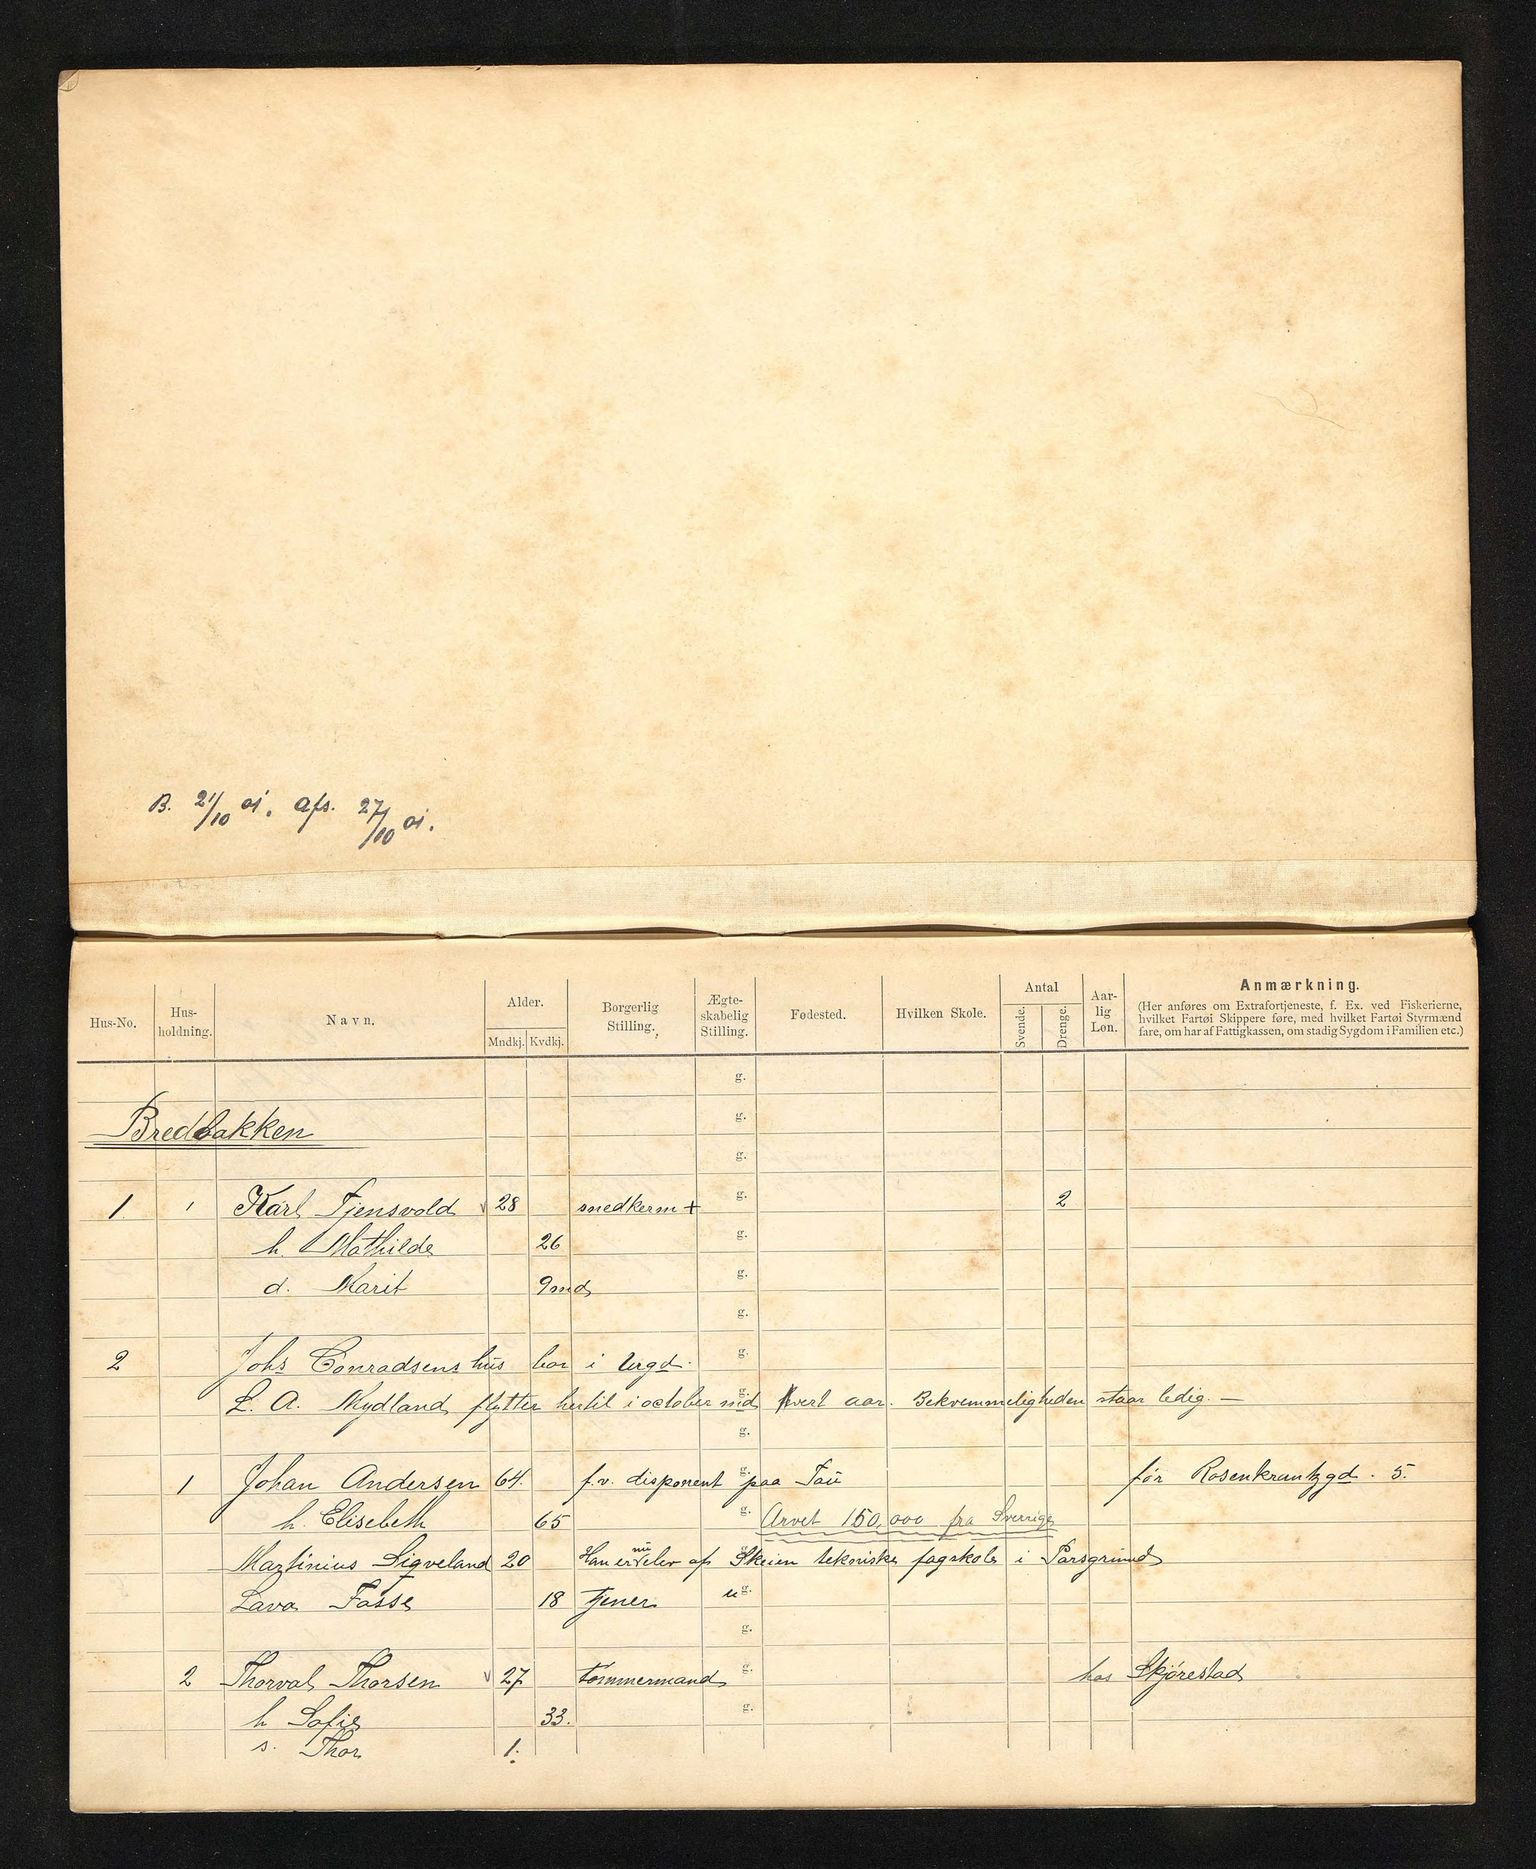 B. 21/10 01. Afs. 27/10 01.
Hus-No. Hus-holdning. Navn. Alder. Mndkj. Kvdkj. Borgerlig Stilling. Ægte-skabelig Stilling. Fødested. Hvilken Skole. Antal Svende. Drenge. Aar-lig Løn. Anmærkning.
(Her anføres om Extrafortjeneste, f. Ex. ved Fiskerierne,
hvilket Fartøi Skippere føre, med hvilket Fartøi Styrmænd
fare, om har af Fattigkassen, om stadig Sygdom i Familien etc.)
g.
Bredbakken g.
g.
1. 1 Karl Tjensvold 28 snedkerm + g. 2
h. Mathilde 26 g.
d. Marit 9 md g.
g.
2 Johs Conradsens hus bor i Urgd. g.
L. A. Mydland flytter hertil i october md hvert aar. Bekvemmeligheden staar ledig. — g.
g.
1 Johan Andersen 64. f.v. disponent paa Tau g. før Rosenkrantzgd. 5.
h. Elisebeth 65 g. Arvet 150,000 fra Sverrige
Martinius Sigveland 20 Han er nu elev af Skien tekniske fagskole i Porsgrund g.
Lava Fosse 18 tjener u g.
g.
2 Thorval Thorsen 27 tømmermand g. hos Skjørestad
h Sofie 33. g.
s. Thor 1.